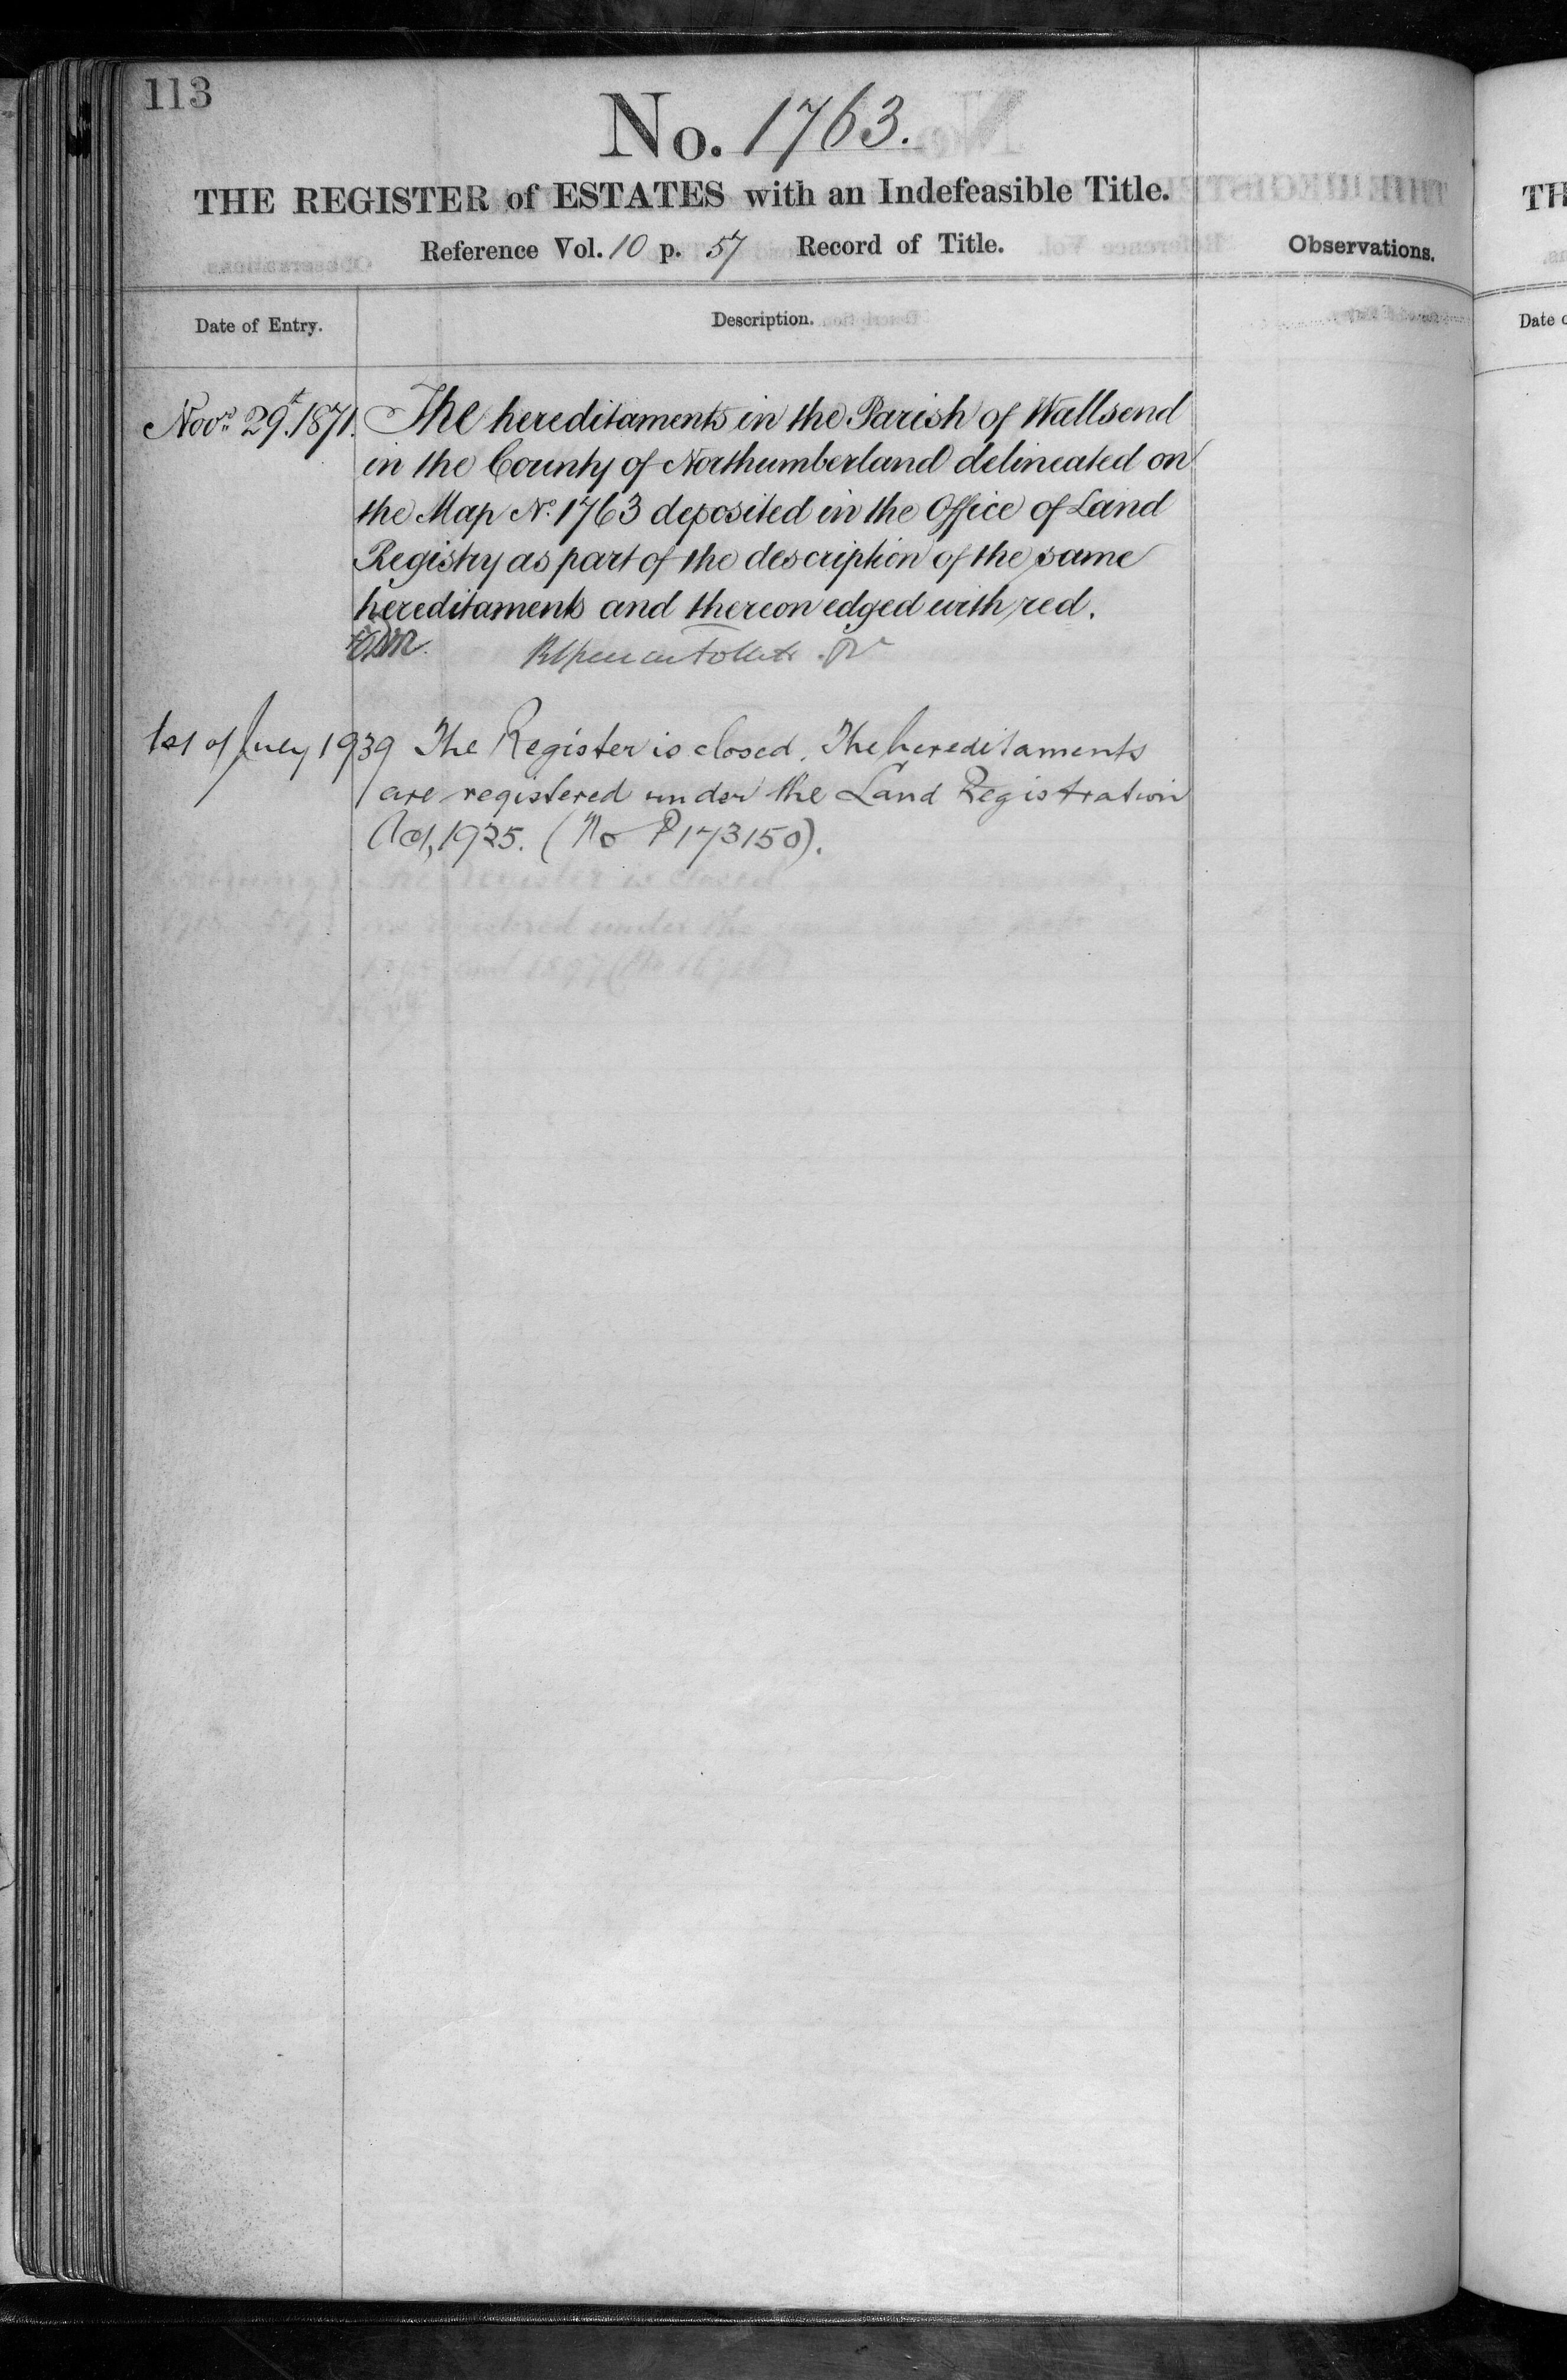 113
No. 1763.
THE REGISTER of ESTATES with an Indefeasible Title.
Reference Vol. 10 p. 57 Record of Title.
Observations.
Date of Entry.
Description.
Novr. 29t. 1871. The hereditaments in the Parish of Wallsend
in the County of Northumberland delineated on
the Map No. 1763 deposited in the Office of Land
Registry as part of the description of the same
hereditaments and thereon edged with red.
1st of July 1939 The Register is closed. The hereditaments
are registered under the Land Registration
Act, 1925. (No P173150).
TH
Date